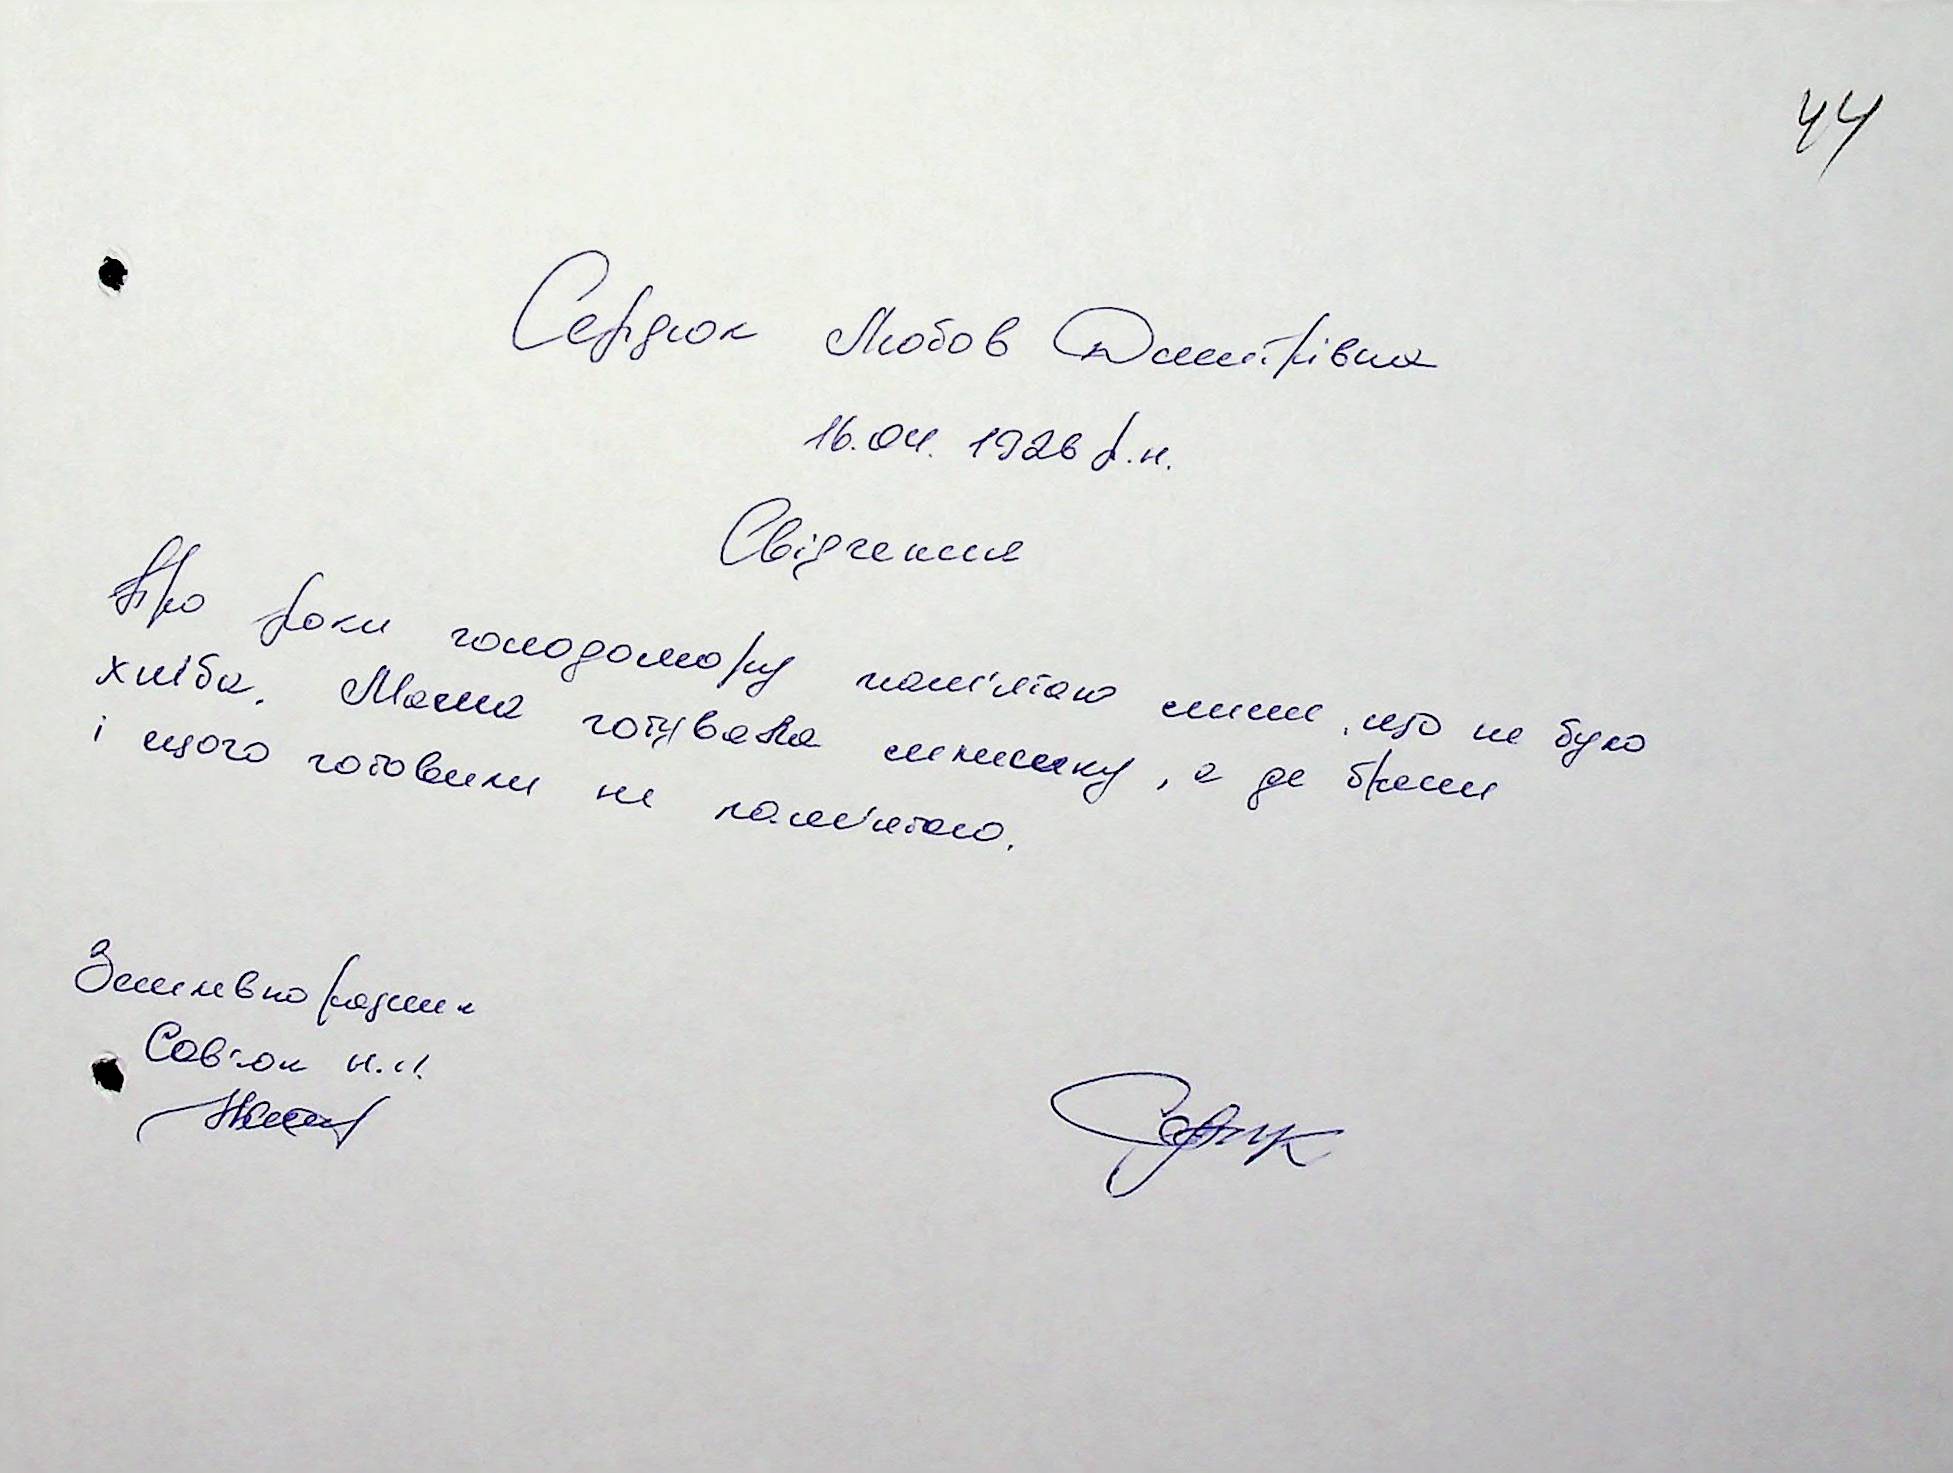 44
Сердюк Любов Дмитрівна
16.04.1926 р.н.
Свідчення
Про роки голодомору пам'ятаю лише, що не було
хліба. Мама готувала млинику, а де брали
і цього готовили не пам'ятаю.
Землевпорядник
Сов'юк Н.І.